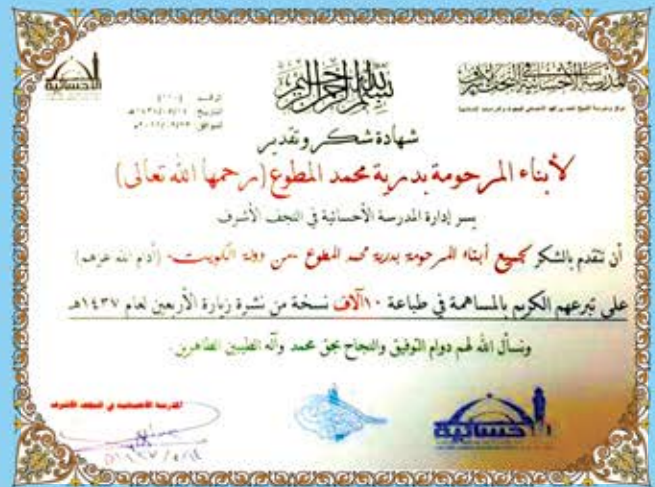 المدرسة الأحسائية في النجف الأشرف
بسم الله الرحمن الرحيم
الأحسائية
شهادة شكر وتقدير
لأبناء المرحومة بدرية محمد المطوع (رحمها الله تعالى)
يسر إدارة المدرسة الأحسائية في النجف الأشرف
أن تتقدم بالشكر لجميع أبناء المرحومة بدرية محمد المطوع -من دولة الكويت- (أدام الله عزهم)
على تبرعهم الكريم بالمساهمة في طباعة ١٠آلاف نسخة من نشرة زيارة الأربعين لعام ١٤٣٧هـ
ونسأل الله لهم دوام التوفيق والنجاح بحق محمد وآله الطيبين الطاهرين.
المدرسة الأحسائية في النجف الأشرف
الأحسائية